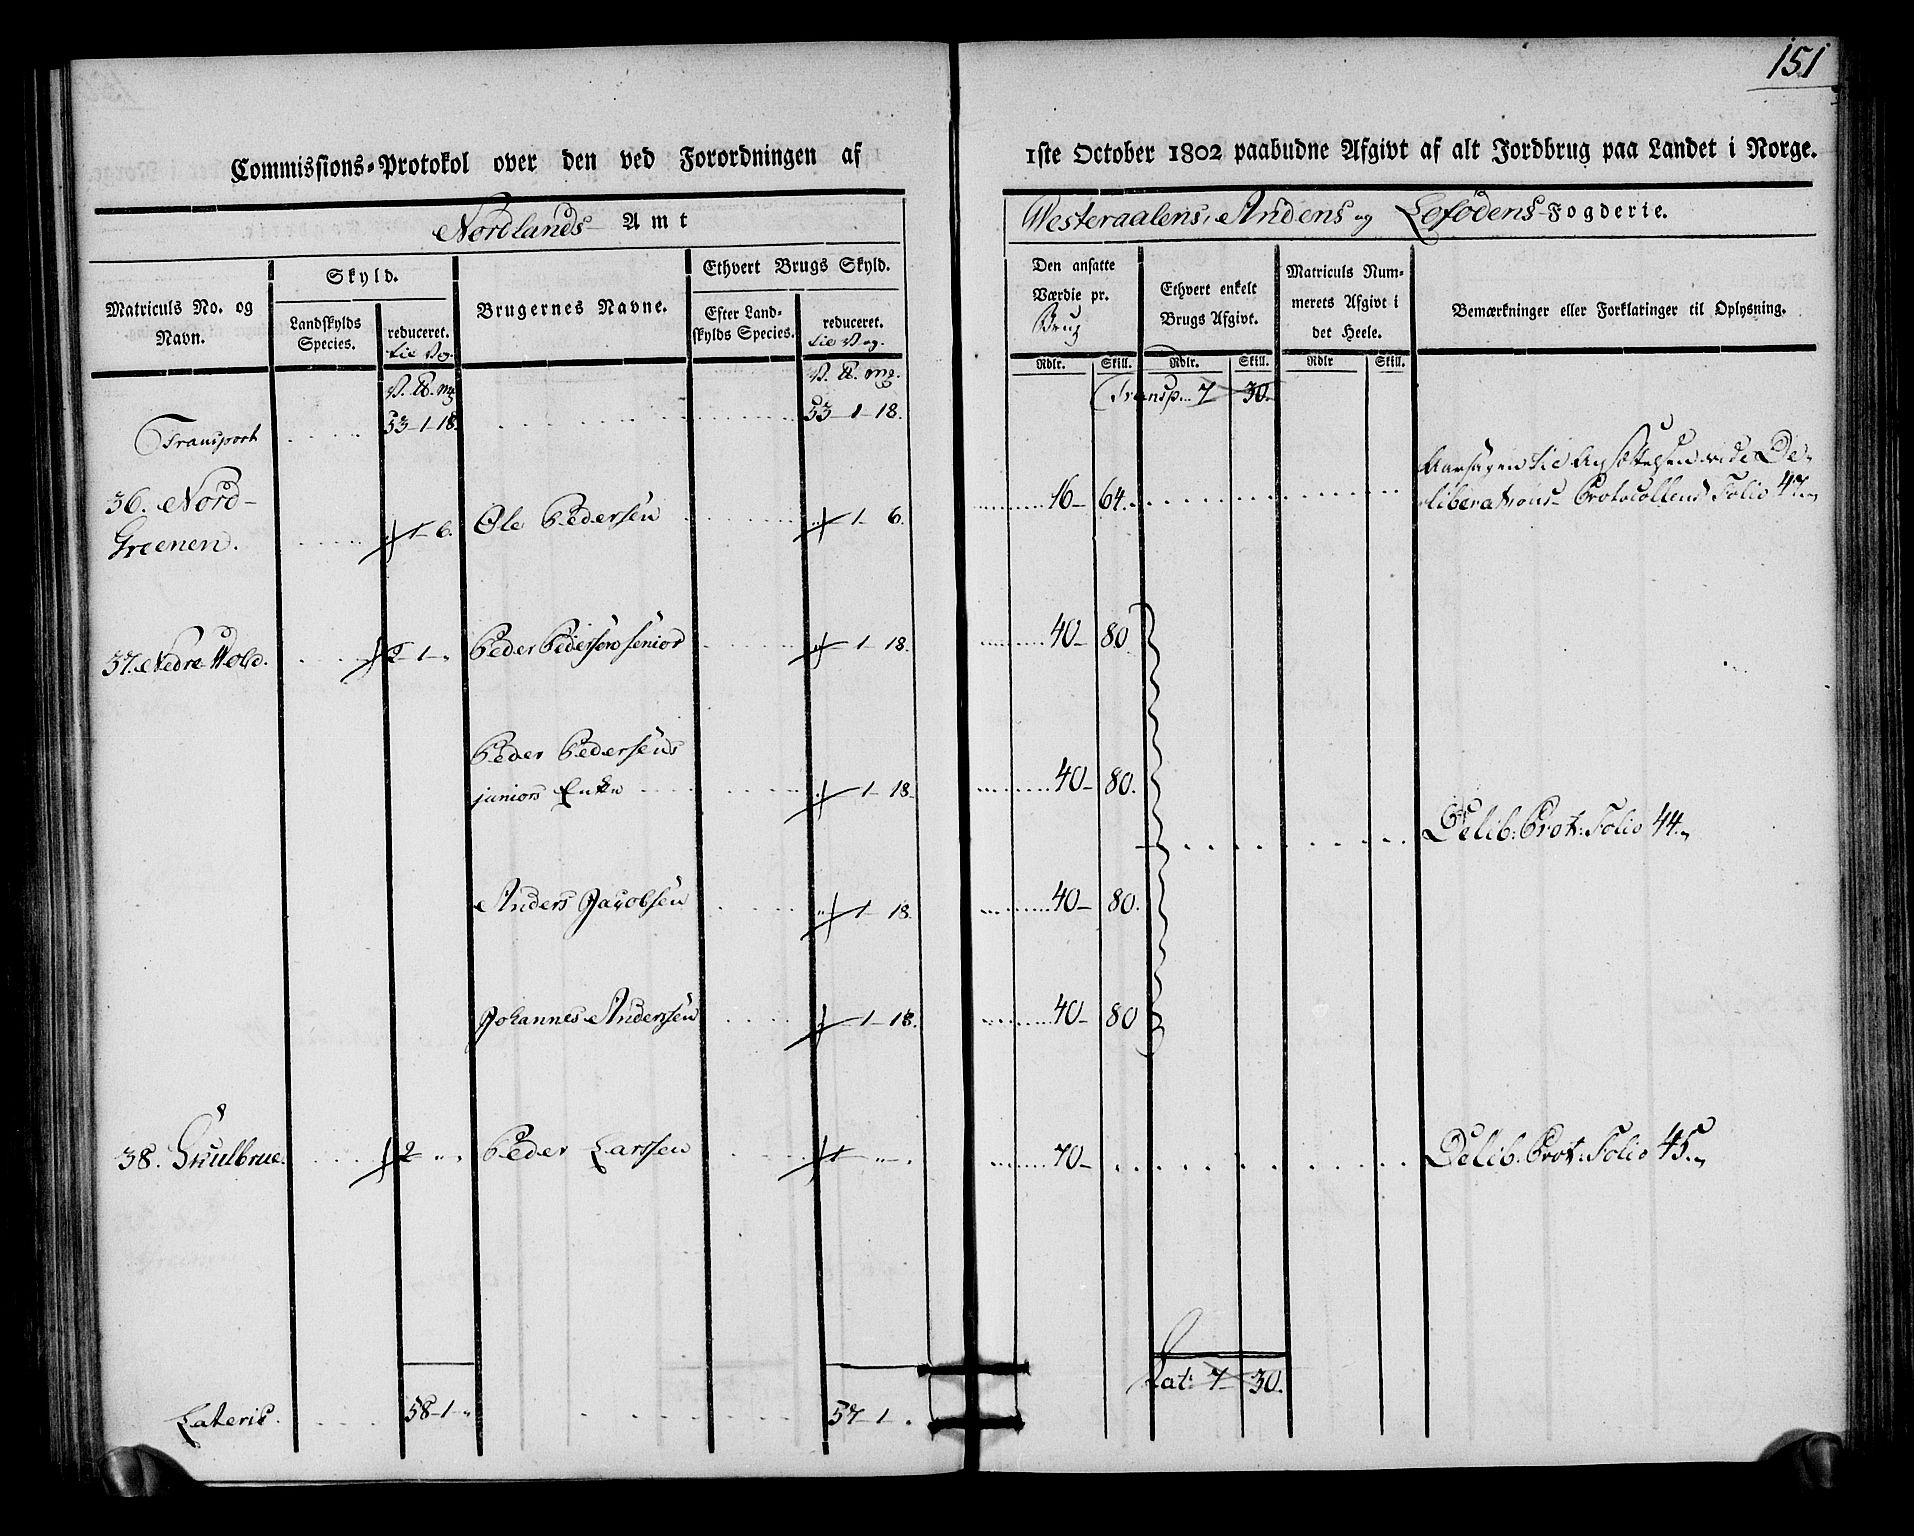 151
Commissions-Protokol over den ved Forordningen af 1ste October 1802 paabudne Afgivt af alt Jordbrug paa Landet i Norge.
Nordlands Amt
Westeraalens, Andens og Lofodens Fogderie.
Matriculs No. og Navn.
Skyld.
Landskylds Species.
reduceret. til Vog.
Brugernes Navne.
Ethvert Brugs Skyld.
Efter Landskylds Species.
reduceret. til Vog.
Den ansatte Værdie pr. Brug
Ethvert enkelt Brugs Afgivt.
Matriculs Nummerets Afgivt i det Heele.
Bemærkninger eller Forklaringer til Oplysning.
Rdlr. Skill. Rdlr. Skill. Rdlr Skill.
V. ℔. mg. V. ℔. mg.
Transport 53-1-18. 53-1-18. Transp. 7 30.
36. Nord-
Greenen. 1-6. Ole Pedersen 1-6. 16-64. Aarsagen til Ansættelsen vide De-
liberations-Protocollens Folio 47.
37. Nedre Vold. 2-1-" Peder Pedersen senior 1-18. 40-80
Peder Pedersens
juniors Enke 1-18. 40-80. Delib: Prot: Folio 44.
Anders Jacobsen 1-18. 40-80.
Johannes Andersen 1-18. 40-80
38. Skulbrue. 2 " . Peder Larssen 1 " . 70- Delib: Prot: Folio 45.
Lat: 7-30.
Lateris. 58-1-" 57-1.